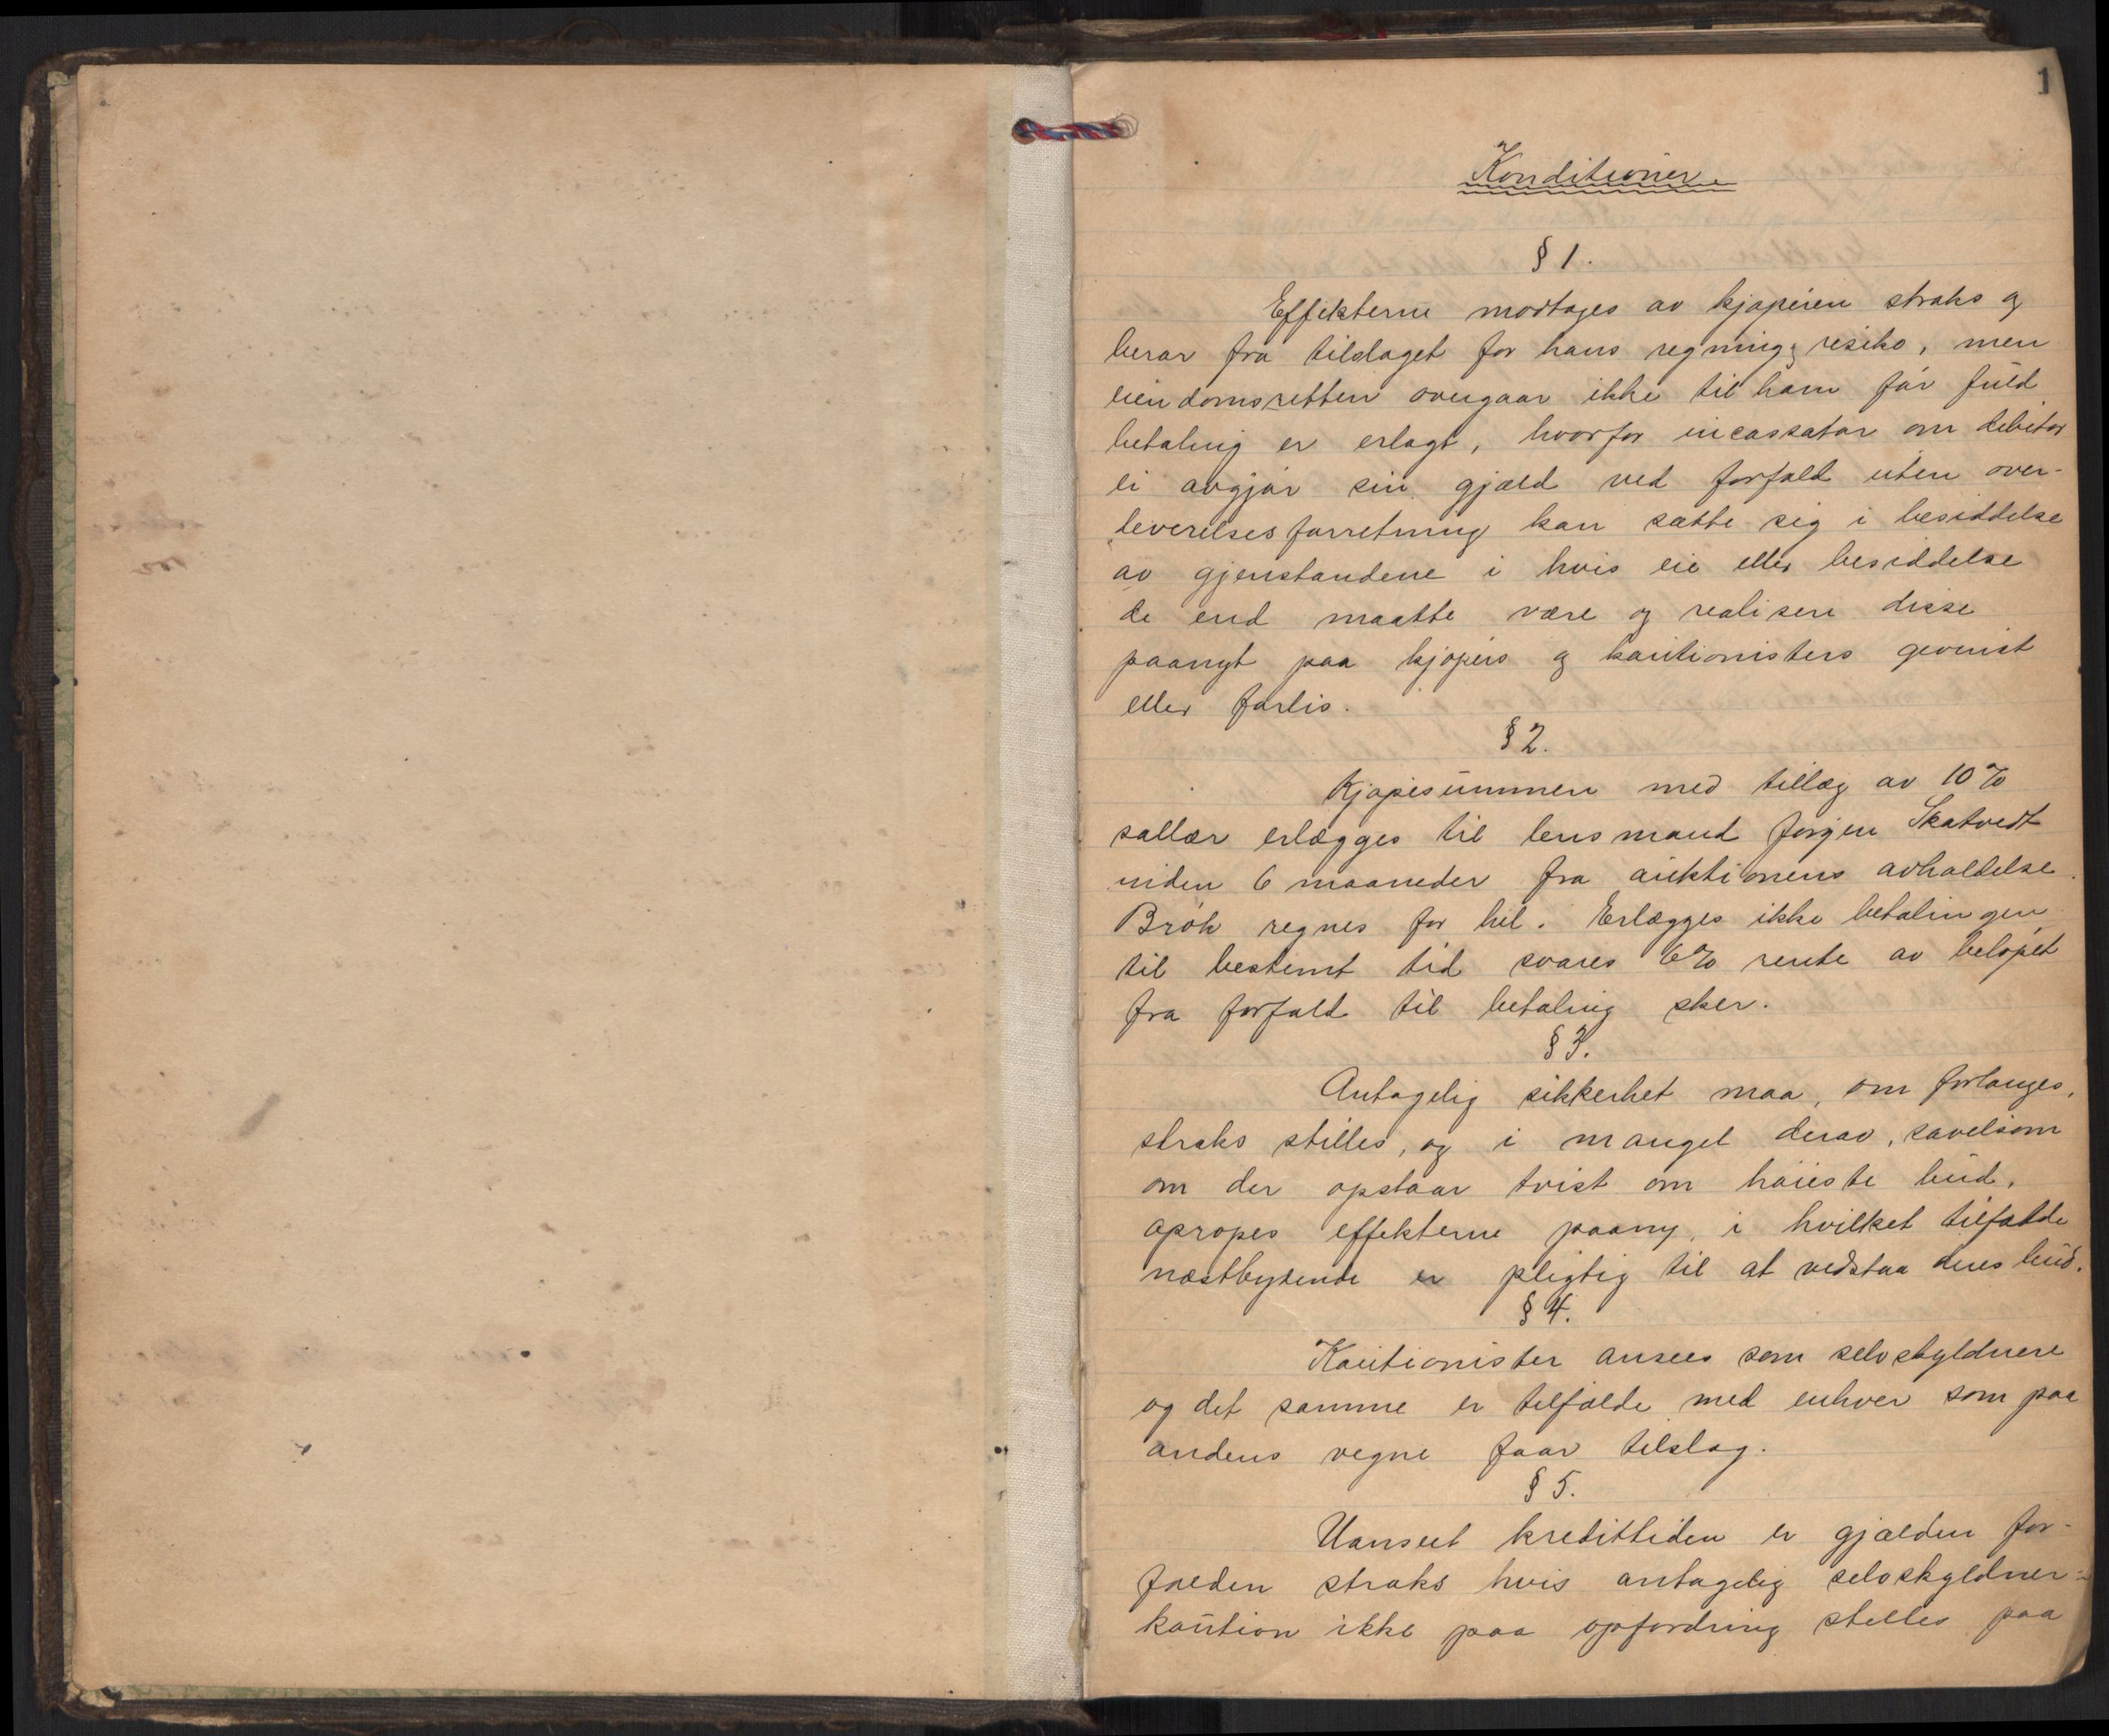 1
Konditioner.
§ 1.
Effekterne mottages av kjøperen straks og
berør fra tilslaget for hans regning & risiko, men
eiendomsretten overgaar ikke til ham før fuld
betaling er erlagt, hvorfor incassator om debitor
ei avgjør sin gjæld ved forfald uten over-
leverelsesforretning kan sætte sig i besiddelse
av gjenstandene i hvis eie eller besiddelse
de end maatte være og realisere disse
paanyt paa kjøpers og kautionisters gevinst
eller forlis.
§ 2.
Kjøpesummen med tillæg av 10%
sallær erlægges til lensmand Jørgen Skatvedt
inden 6 maaneder fra auktionens avholdelse.
Brøk regnes for hel. Erlægges ikke betalingen
til bestemt tid svares 6% rente av beløpet
fra forfald til betaling sker.
§ 3.
Antagelig sikkerhet maa, om forlanges,
straks stilles, og i mangel derav, savelsom
om der opstaar tvist om høieste bud,
opropes effekterne paany, i hvilket tilfælde
næstbydende er pligtig til at vedstaa deres bud.
§ 4.
Kautionister ansees som selvskyldnere
og det samme er tilfælde med enhver som paa
andens vegne faar tilslag.
§ 5.
Uanseet kredittiden er gjælden for-
falden straks hvis antagelig selvskyldner-
kaution ikke paa opfordring stilles paa